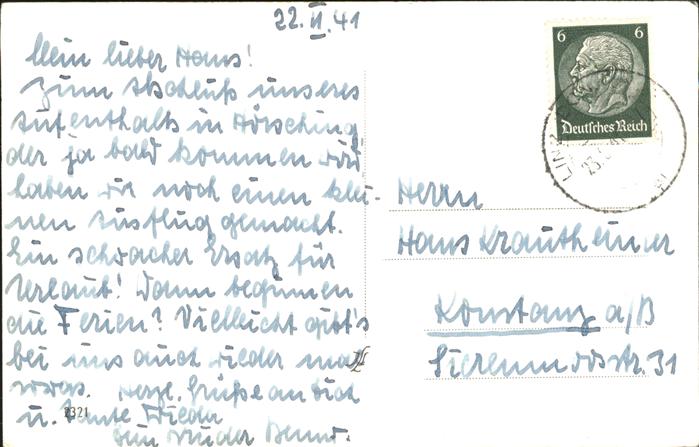 22. II. 41
Mein lieber Hans!
Zum Abschluß unseres
Aufenthalts in Hörsching
der ja bald kommen wird
haben wir noch einen klei-
nen Ausflug gemacht.
Ein schwacher Ersatz für
Urlaub! Wann beginnen
die Ferien? Vielleicht gibt's
bei uns auch wieder mal
sowas. Herzl. Grüße an Dich
u. Tante Frieda
Dein Bruder Bernd.
2321
6 6
Deutsches Reich
LINZ
23.
Herrn
Hans Krautheimer
Konstanz a/B
31